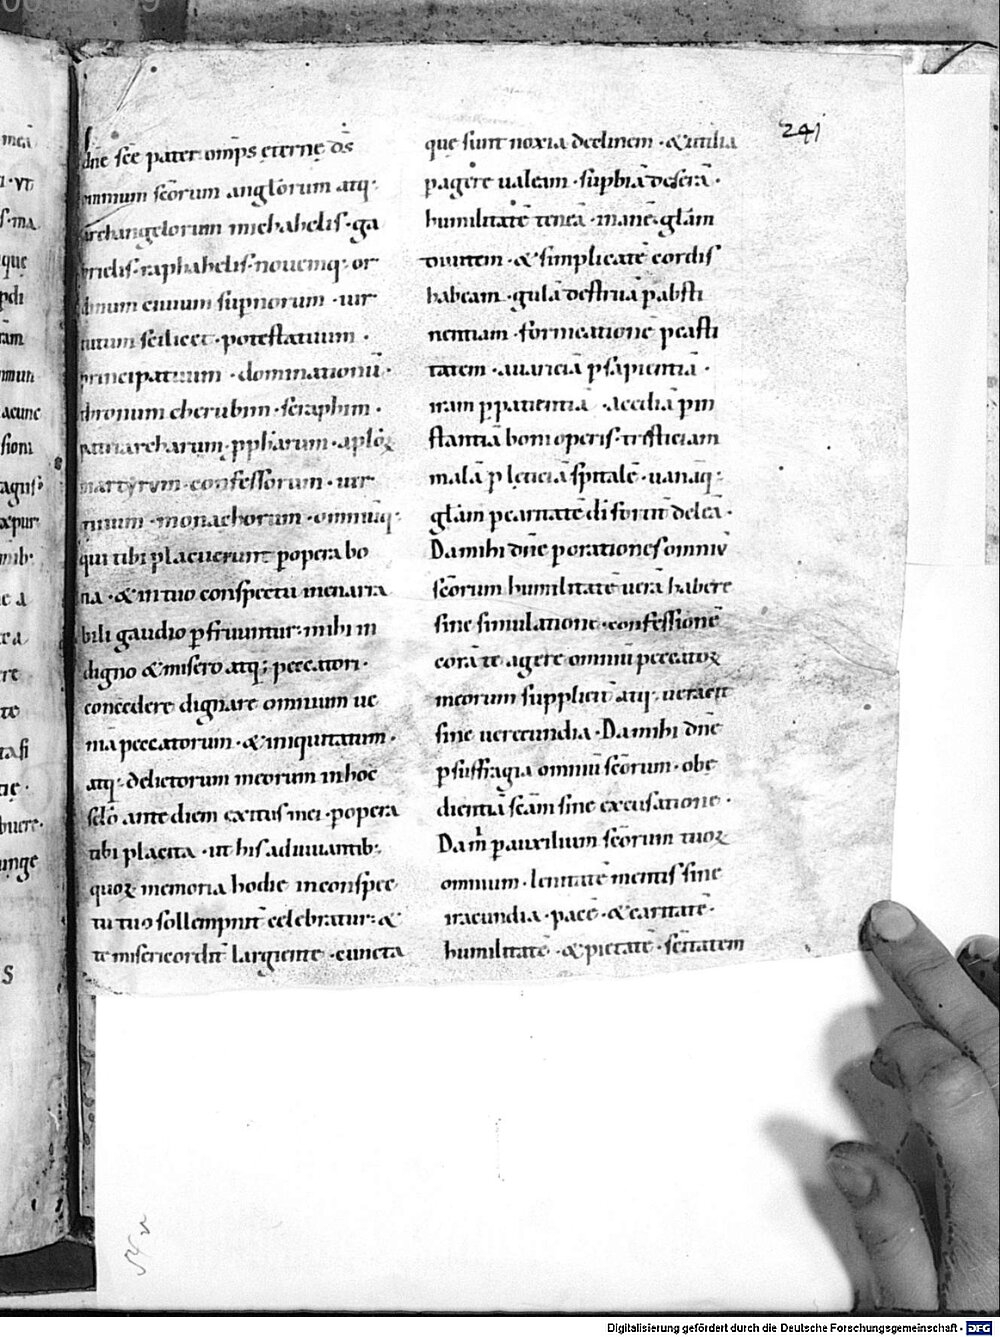 241
dn̄e sc̄e pater omīps eterne ds̄
omnium sc̄orum angl̄orum atq;
archangelorum michahelis · ga
brielis · raphahelis · nouemq; or
dinum ciuium supnorum · uir
tutum scilicet · potestatuum ·
principatuum · dominationū ·
thronum cherubim · seraphim ·
patriarcharum · pph̄arum · apl̄oꝝ
martyrum · confessorum · uir
ginum · monachorum · omniūq;
qui tibi placuerunt ꝑ opera bo
na · & in tuo conspectu inenarra
bili gaudio ꝑfruuntur · mihi in
digno & misero atq; peccatori ·
concedere dignare omnium ue
niā peccatorum · & iniquitatum ·
atq; delictorum meorum in hoc
sc̄lo ante diem exitus mei · ꝑ opera
tibi placita · ut his adiuuantib;
quoꝝ memoria hodie in conspec
tu tuo sollempnit̄ celebratur · &
te misericordit̄ largiente · cuncta
que sunt noxia declinem · & utilia
ꝑagere ualeam · suꝑbiā deserā ·
humilitatē teneā · inanē gl̄am
deuitem · & simplicatē cordis
habeam · gulā destruā ꝑ absti
nentiam · fornicationē ꝑ casti
tatem · auariciā ꝑ sapientiā ·
iram ꝑ patientiā · accidiā ꝑ in
stantiā boni operis · tristiciam
malā ꝑ leticiā spitalē · uanāq;
gl̄am ꝑ caritatē di sorim deleā ·
Da mihi dn̄e ꝑ orationes omniū
sc̄orum humilitatē uerā habere
sine simulatione · confessionē
corā te agere omniū peccatoꝝ
meorum supplicit̄ atq; ueracit̄
sine uerecundia · Da mihi dn̄e
ꝑ suffragia omniū sc̄orum · obe
dientiā sc̄am sine excusatione ·
Da m̄ ꝑ auxilium sc̄orum tuoꝝ
omnium · lenitatē mentis sine
iracundia · pacē · & caritatē ·
humilitatē · & pietatē · sc̄itatem
Digitalisierung gefördert durch die Deutsche Forschungsgemeinschaft - DFG